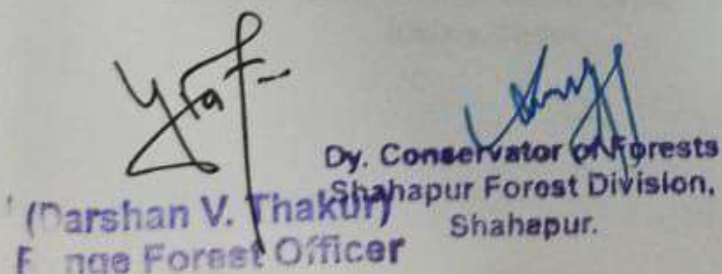 (Darshan V. Thakur)
Range Forest Officer
Dy. Conservator of Forests
Shahapur Forest Division,
Shahapur.